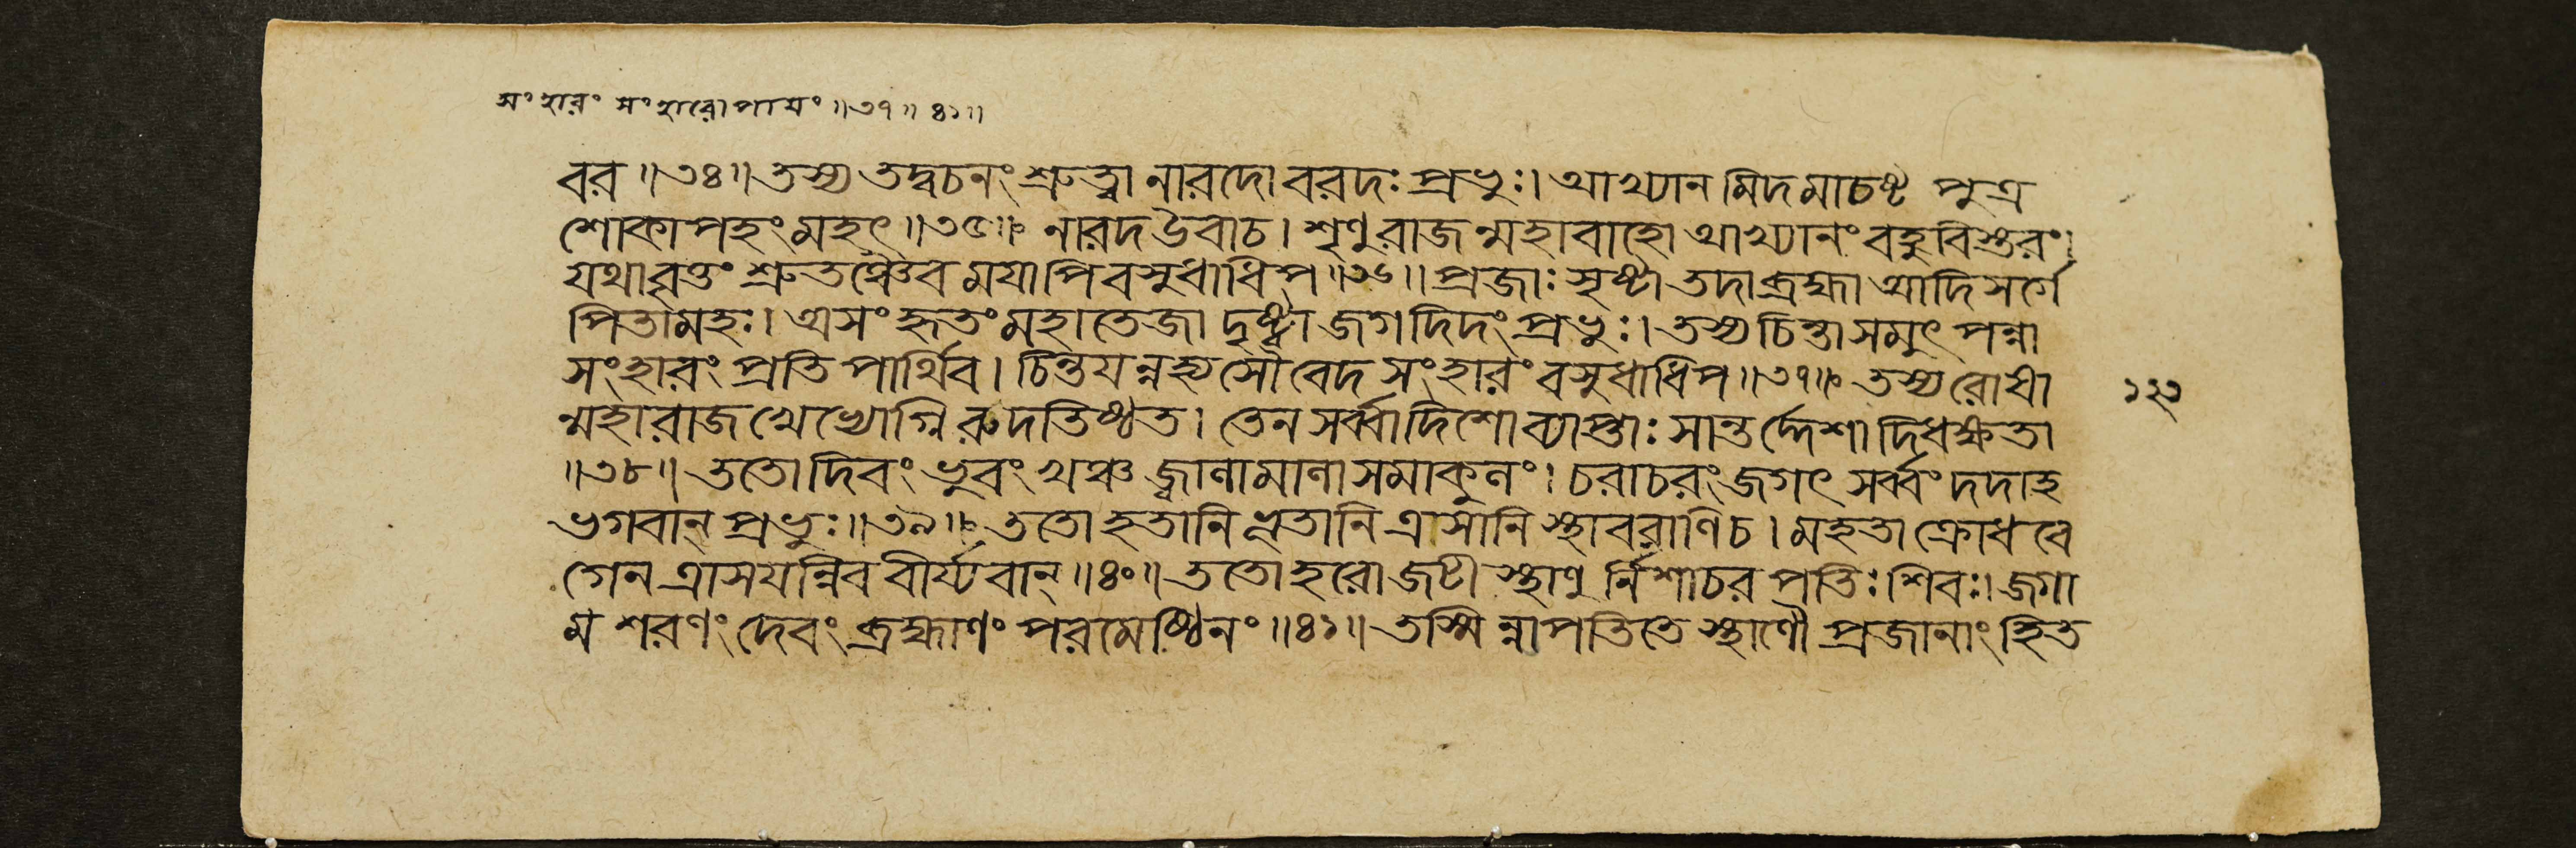 সংহারং সংহারোপায়ং॥৩৭॥৪১॥
বর॥৩৪॥তস্য তদ্বচনং শ্রুত্বা নারদো বরদঃ প্রভুঃ। আখ্যান মিদমাচষ্ট পুত্র
শোকাপহং মহৎ॥৩৫॥ নারদ উবাচ। শৃণু রাজন্মহাবাহো আখ্যানং বহুবিস্তরং।
যথাবৃত্তং শ্রুতঞ্চৈব ময়াপি বসুধাধিপ॥৩৬॥ প্রজাঃ সৃষ্টা তদা ব্রহ্মা আদিসর্গে
পিতামহঃ। অসংহৃতং মহাতেজা দৃষ্ট্বা জগদিদং প্রভুঃ। তস্য চিন্তা সমুৎপন্না
সংহারং প্রতি পার্থিব। চিন্তয়ন্নহ্যসৌ বেদ সংহারং বসুধাধিপ॥৩৭॥ তস্য রোষা ১২৩
ন্মহারাজ খেখ্যোগ্নি রুদতিষ্ঠত। তেন সর্ব্বাদিশো ব্যাপ্তাঃ সান্তর্দ্দেশা দিধক্ষতা
॥৩৮॥ ততো দিবং ভুবং খঞ্চ জ্বালামালাসমাকুলং। চরাচরং জগৎ সর্ব্বং দদাহ
ভগবান্ প্রভুঃ॥৩৯॥ ততো হতানি ভূতানি ত্রাসানি স্থাবরাণি চ। মহতা ক্রোধবে
গেন ত্রাসয়ন্নিব বীর্য্যবান্॥৪০॥ ততো হরো জটী স্থাণু র্নিশাচর পতিঃ শিবঃ। জগা
ম শরণং দেবং ব্রহ্মাণং পরমেষ্ঠিনং॥৪১॥ তস্মিন্নাপতিতে স্থাণৌ প্রজানাং হিত